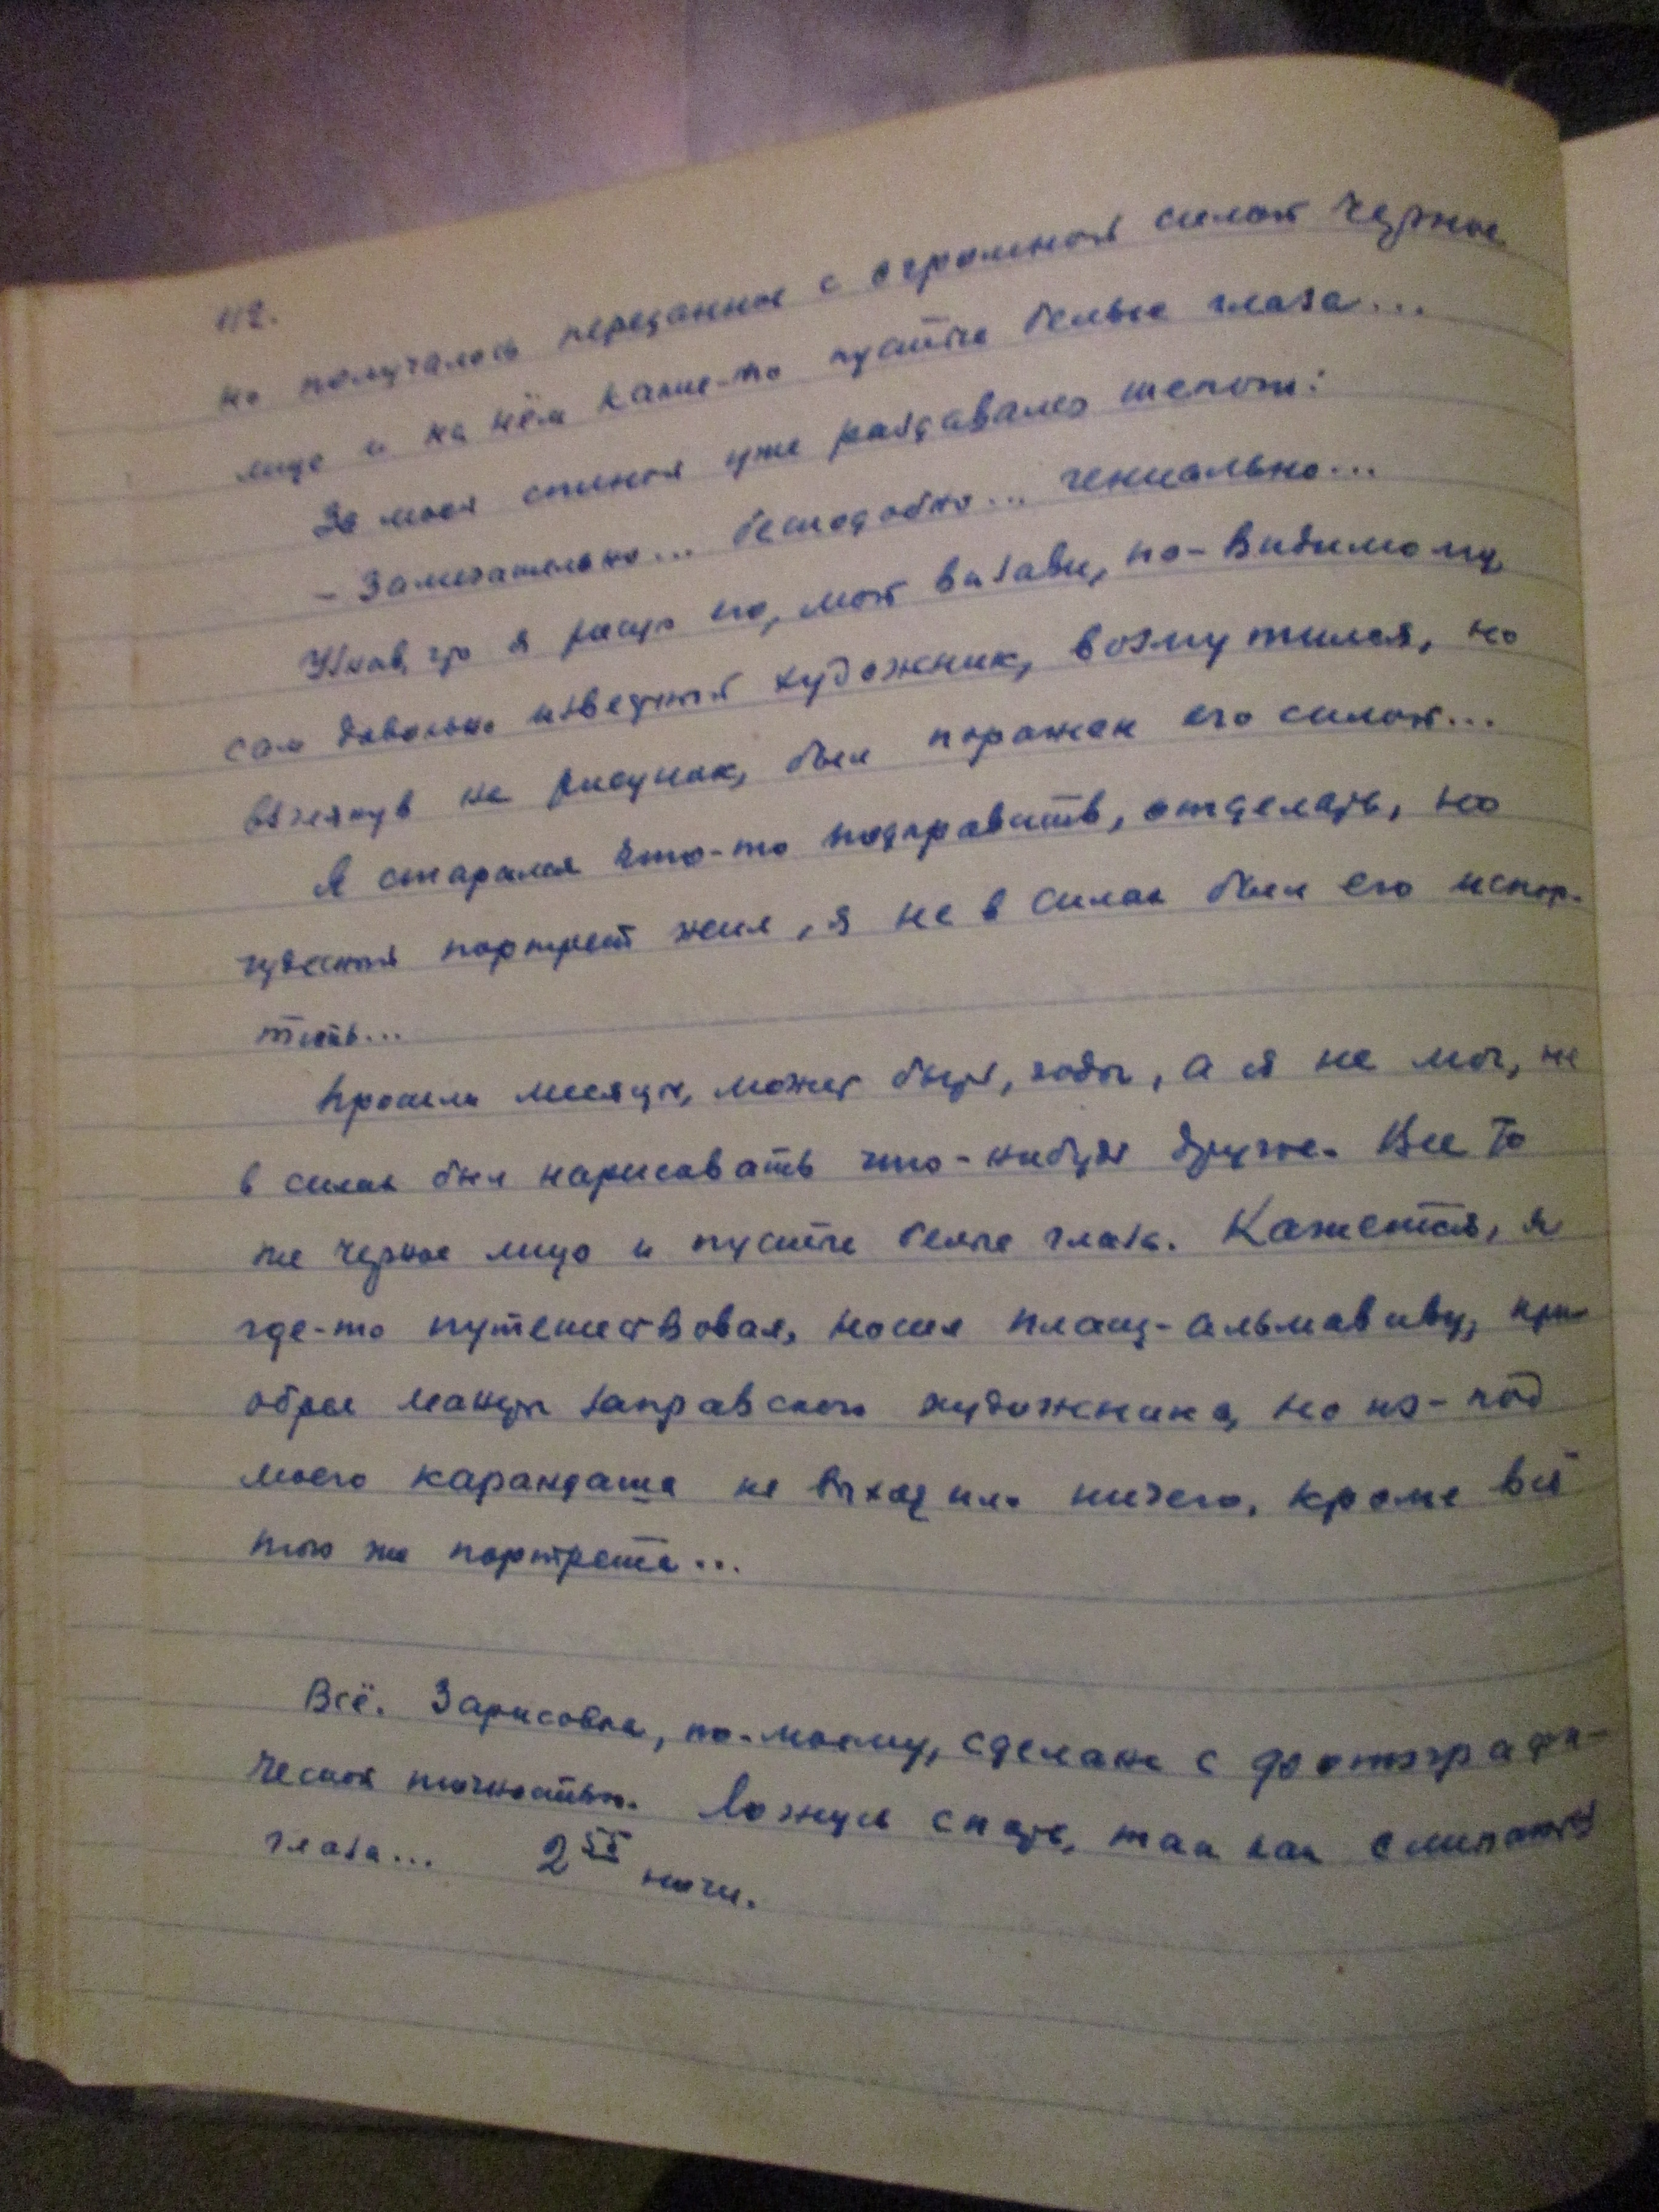 112.
но получалось переданное с огромной силой черное
лицо и на нём какие-то пустые белые глаза...
За моей спиной уже раздавался шепот:
- Замечательно... бесподобно... гениально...
Узнав, что я рисую его, мой визави, по-видимому,
сам довольно известный художник, возмутился, но
взглянув на рисунок, был поражен его силой...
Я старался что-то подправить, отделать, но
чудесный портрет жил, я не в силах был его испор-
тить...
Прошли месяцы, может быть, годы, а я не мог, не
в силах был нарисовать что-нибудь другое. Все то
же черное лицо и пустые белые глаза. Кажется, я
где-то путешествовал, носил плащ-альмавиву, при-
обрел манеры заправского художника, но из-под
моего карандаша не выходило ничего, кроме всё
того же портрета...
Всё. Зарисовка, по-моему, сделана с фотографи-
ческой точностью. Ложусь спать, так как слипаются
глаза... 2 55 ночи.